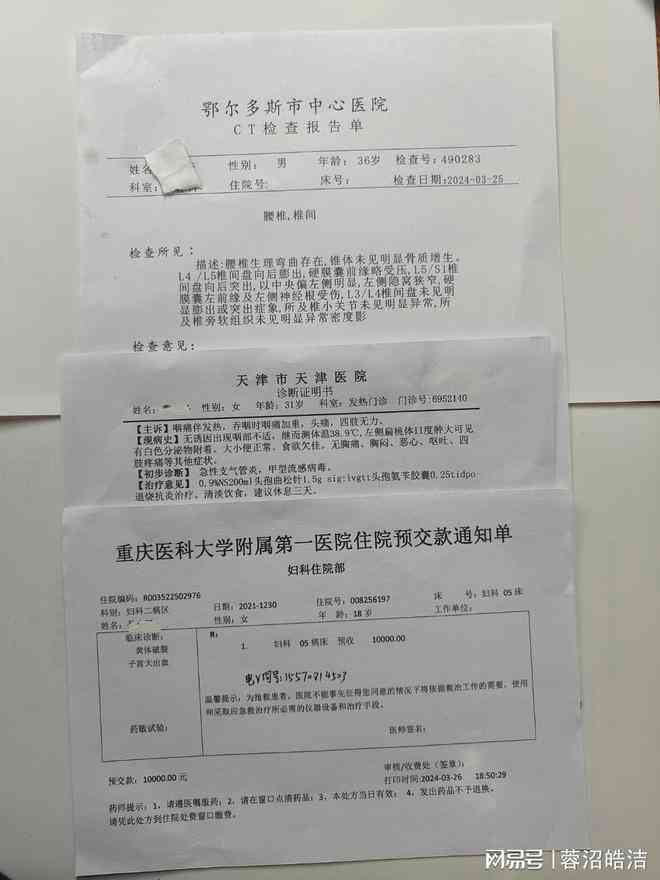 鄂尔多斯市中心医院
CT检查报告单
姓名 性别: 男 年龄: 36岁 检查号: 490283
科室: 住院号: 床号: 检查日期:2024-03-25
腰椎,椎间
检查所见:
描述:腰椎生理弯曲存在,锥体未见明显骨质增生。
L4 /L5椎间盘向后膨出,硬膜囊前缘略受压,L5/S1椎
间盘向后突出,以中央偏左侧明显,左侧隐窝狭窄,硬
膜囊左前缘及左侧神经根受伤,L3/L4椎间盘未见明
显膨出或突出症象,所及椎小关节未见明显异常,所
及椎旁软组织未见明显异常密度影
检查意见:
天津市天津医院
诊断证明书
姓名: 性别: 女 年龄: 31岁 科室: 发热门诊 门诊号:6952140
【主诉】咽痛伴发热,吞咽时咽痛加重,头痛,四肢无力。
【现病史】无诱因出现咽部不适,继而测体温38.9℃,左侧扁桃体II度肿大可见
有白色分泌物附着。大小便正常。食欲欠佳。无胸痛、胸闷、恶心、呕吐、四
肢疼痛等其他症状。
【初步诊断】 急性支气管炎,甲型流感病毒。
【治疗意见】0.9%NS200ml头孢曲松针1.5g sig:ivgtt头孢氨苄胶囊0.25tidpo
退烧抗炎治疗。清淡饮食,建议休息三天。
重庆医科大学附属第一医院住院预交款通知单
妇科住院部
住院编码: R003522502976 日期: 2021-1230 住院号: 008256197 床 号: 妇科 05 床
科别: 妇科二病区 性别: 女 年 龄: 18 岁 工作单位:
姓名:
临床诊断: R:
黄体破裂 1. 妇科 05 病床 预收 10000.00
子宫大出血
温馨提示,为抢救患者,医院不能事先征得您同意的情况下将依据救治工作的需要,使用
和采取应急救治疗所必需的仪器设备和治疗手段。
药敏试验: 医师签名:
预交款: 10000.00 元 审核/收费处(签章):
打印时间:2024-03-26 18:50:29
药师提示: 1、请遵医嘱服药; 2、请在窗口点清药品; 3、本处方当日有效; 4、发出药品不予退换。
请凭此处方到住院处费窗口缴费。
网易号 | 蓉沼皓洁